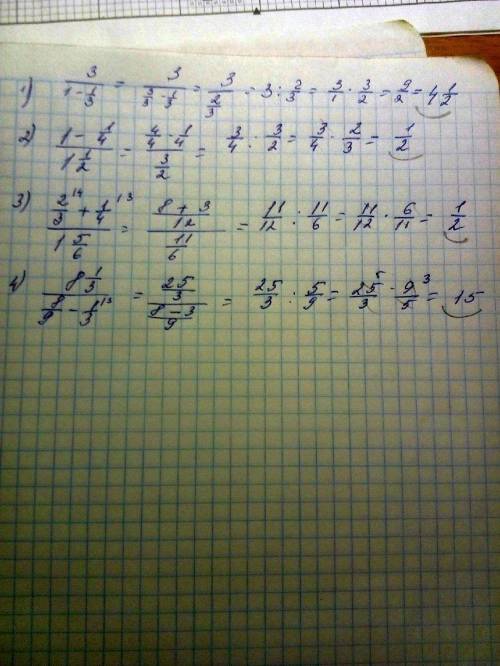 1) 3/(1 - 1/3) = 3/(3/3 - 1/3) = 3/(2/3) = 3 : 2/3 = 3/1 · 3/2 = 9/2 = 4 1/2
2) (1 - 1/4)/(1 1/2) = (4/4 - 1/4)/(3/2) = 3/4 : 3/2 = 3/4 · 2/3 = 1/2
3) (2/3^14 + 1/4^13)/(1 5/6) = ((8 + 3)/12)/(11/6) = 11/12 : 11/6 = 11/12 · 6/11 = 1/2
4) (8 1/3)/(8/9 - 1/3^13) = (25/3)/((8 - 3)/9) = 25/3 : 5/9 = 25^5/3 · 9^3/5 = 15